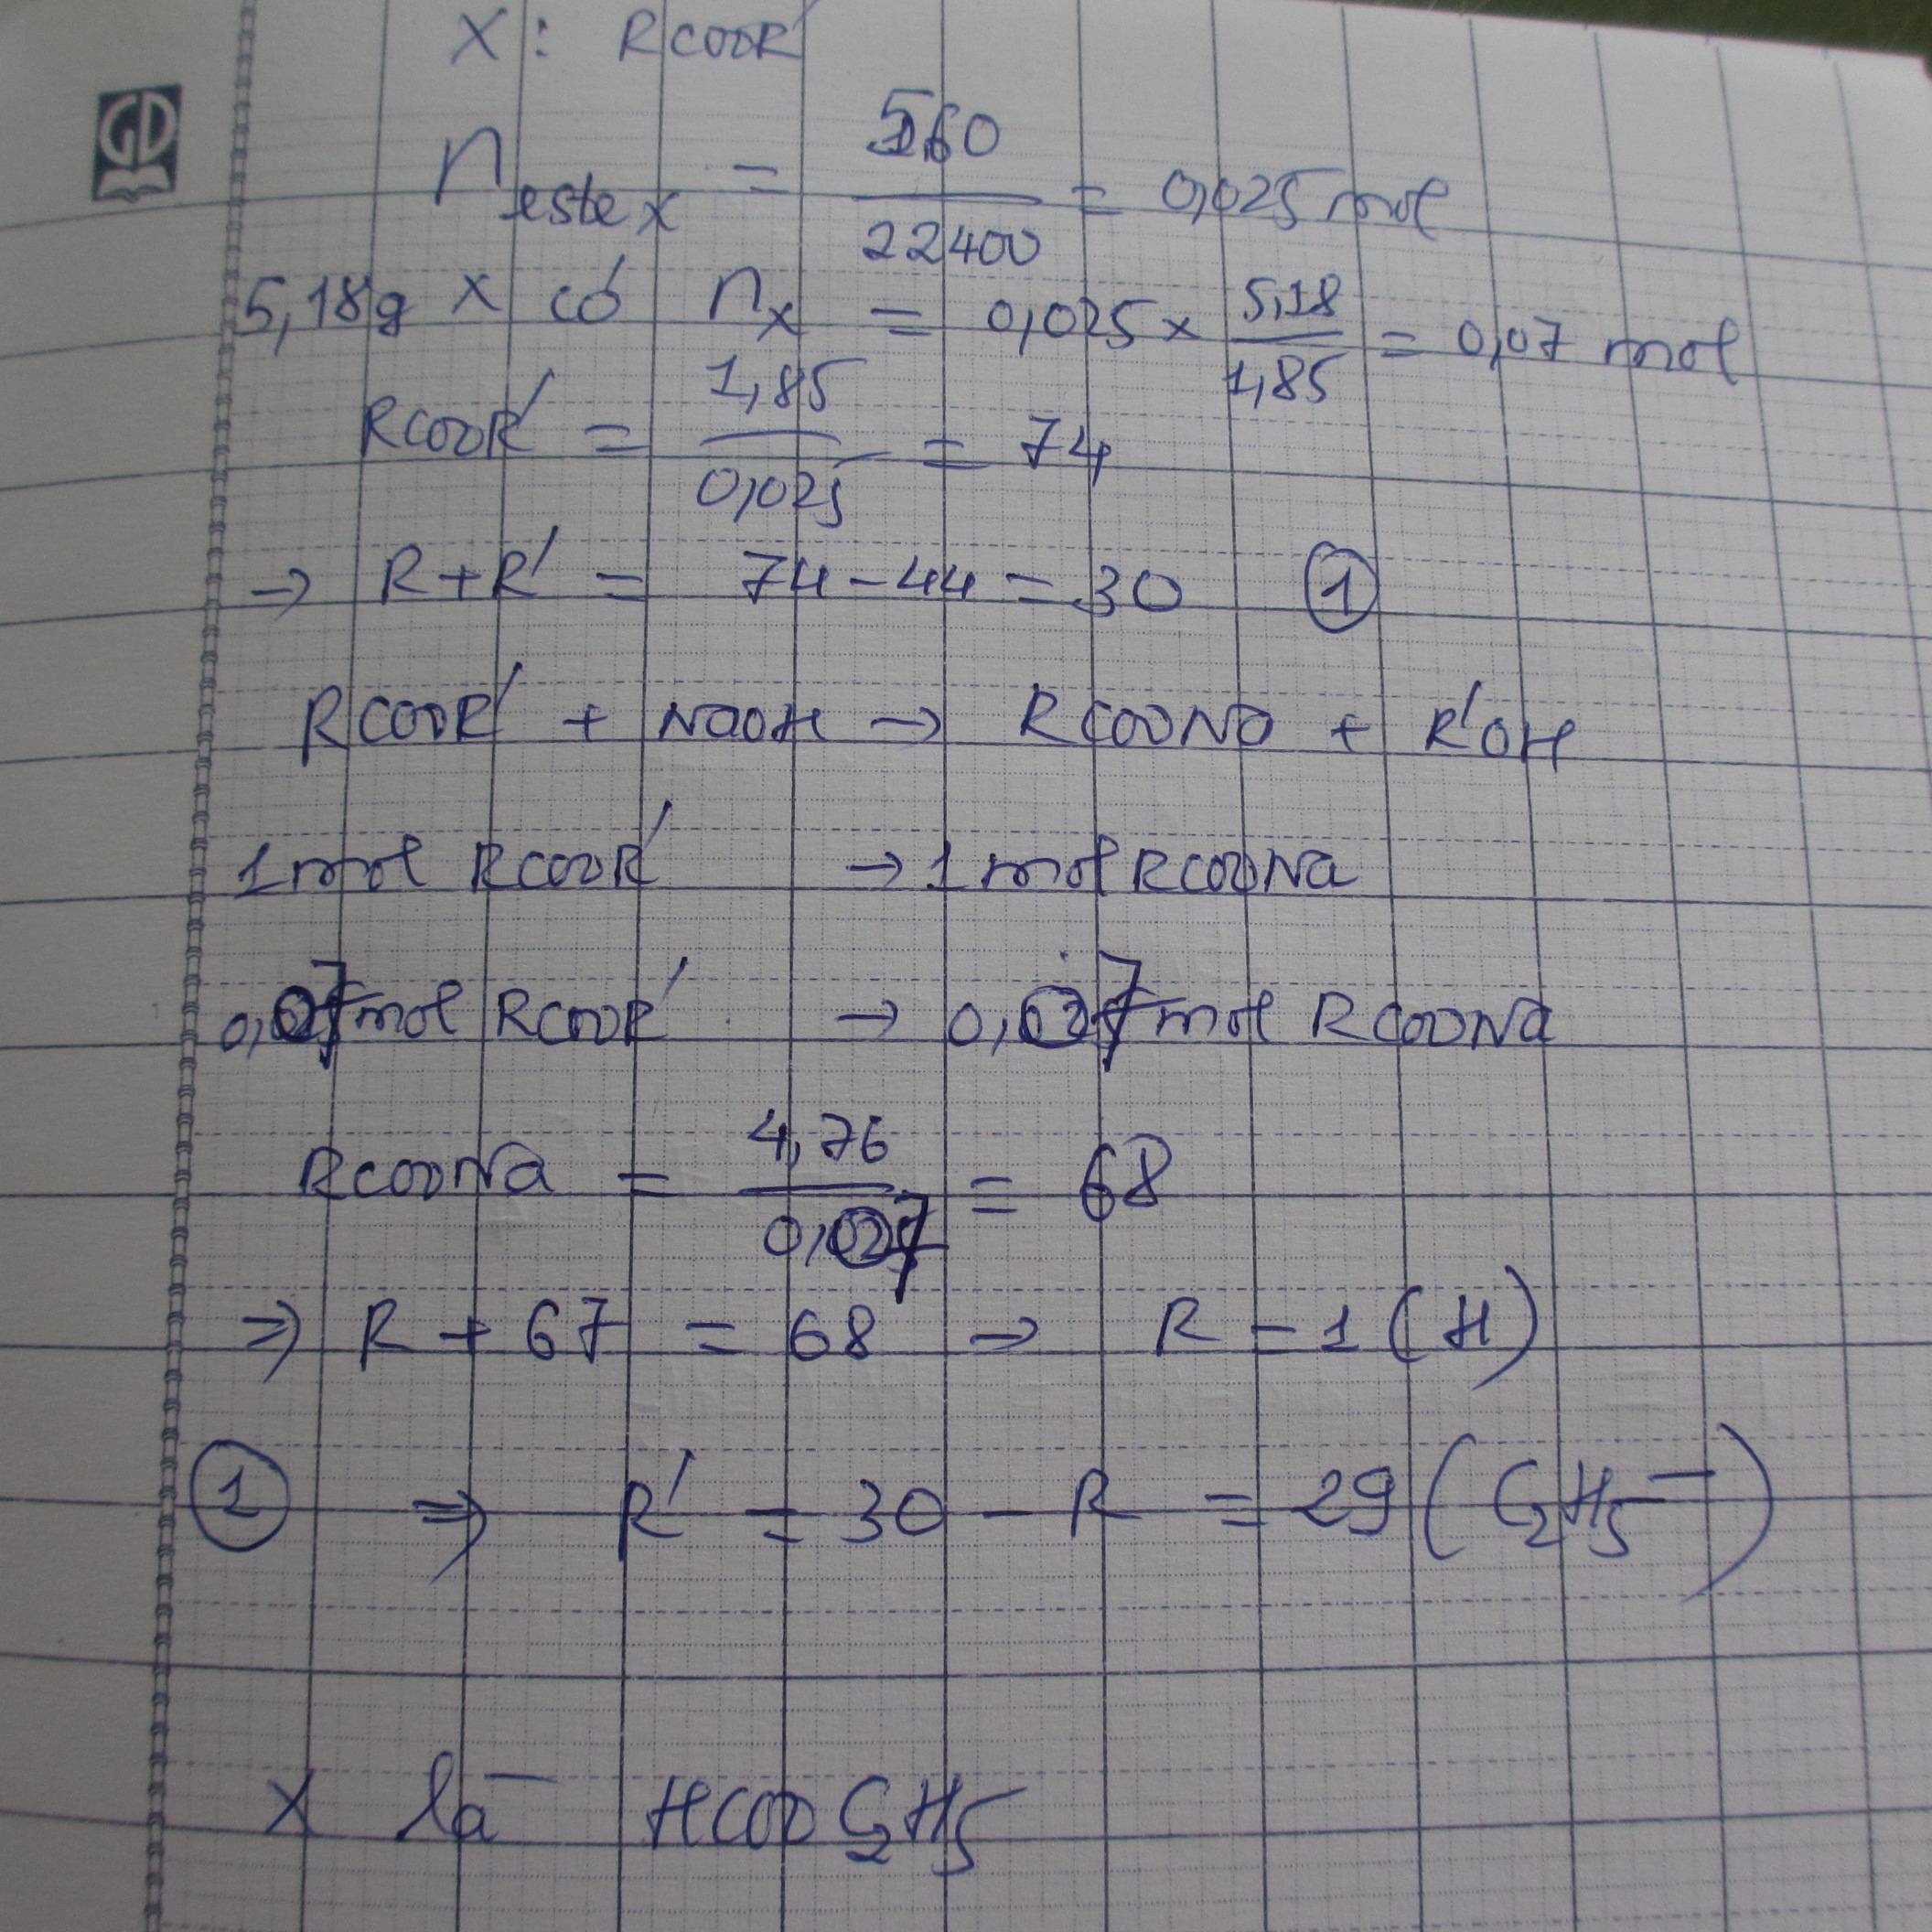 GD
X: RCOOR'
n este X = 560/22400 = 0,025 mol
5,18g X có nX = 0,025 × 5,18/1,85 = 0,07 mol
RCOOR' = 1,85/0,025 = 74
→ R + R' = 74 - 44 = 30 ①
RCOOR' + NaOH → RCOONa + R'OH
1 mol RCOOR' → 1 mol RCOONa
0,07 mol RCOOR' → 0,07 mol RCOONa
RCOONa = 4,76/0,07 = 68
⇒ R + 67 = 68 → R = 1 (H)
① ⇒ R' = 30 - R = 29 (C2H5-)
X là HCOOC2H5